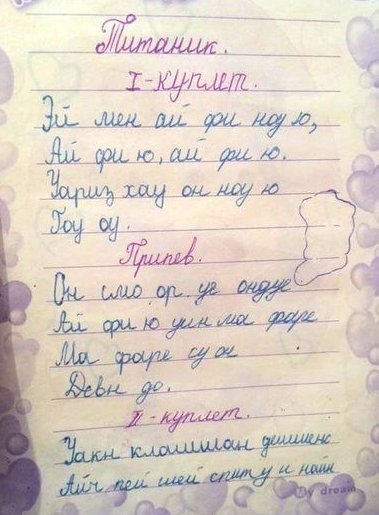 Титаник.
I-куплет.
Эй мен ай фи ноу ю,
Ай фи ю, ай фи ю.
Уариз хау он ноу ю
Гоу оу.
Припев.
Он смо ор уе ондуе
Ай фи ю уин ма фаре
Ма фаре су он
Девн до.
II-куплет.
Уакн клашиан дишиенс
Айч пей шей спиту н найн
My dream